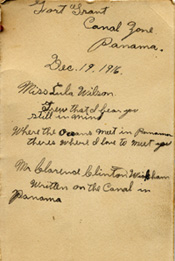 Fort Grant
Canal Zone
Panama.
Dec. 19, 1916.
Miss Lula Wilson.
that I fear you
still in mind
Where the Oceans meet in Panama
theres where I love to meet you
Mr Clarence Clinton
Written on the Canal in
Panama